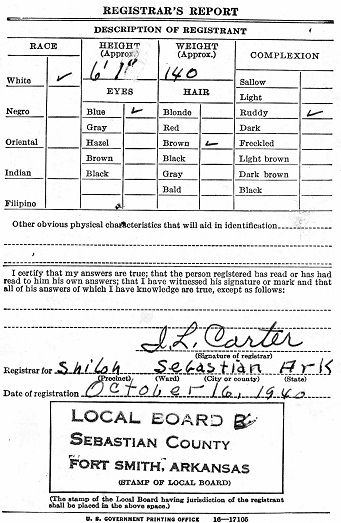 REGISTRAR'S REPORT
DESCRIPTION OF REGISTRANT
RACE HEIGHT (Approx.) WEIGHT (Approx.) COMPLEXION
6' 1" 140
White ✓
EYES HAIR
Sallow
Light
Negro Blue ✓ Blonde Ruddy ✓
Gray Red Dark
Oriental Hazel Brown ✓ Freckled
Brown Black Light brown
Indian Black Gray Dark brown
Bald Black
Filipino
Other obvious physical characteristics that will aid in identification
I certify that my answers are true; that the person registered has read or has had
read to him his own answers; that I have witnessed his signature or mark and that
all of his answers of which I have knowledge are true, except as follows:
J. L. Carter
(Signature of registrar)
Registrar for Shiloh Sebastian Ark
(Precinct) (Ward) (City or county) (State)
Date of registration October 16, 1940
LOCAL BOARD B
SEBASTIAN COUNTY
FORT SMITH, ARKANSAS
(STAMP OF LOCAL BOARD)
(The stamp of the Local Board having jurisdiction of the registrant
shall be placed in the above space.)
U. S. GOVERNMENT PRINTING OFFICE 16—17105